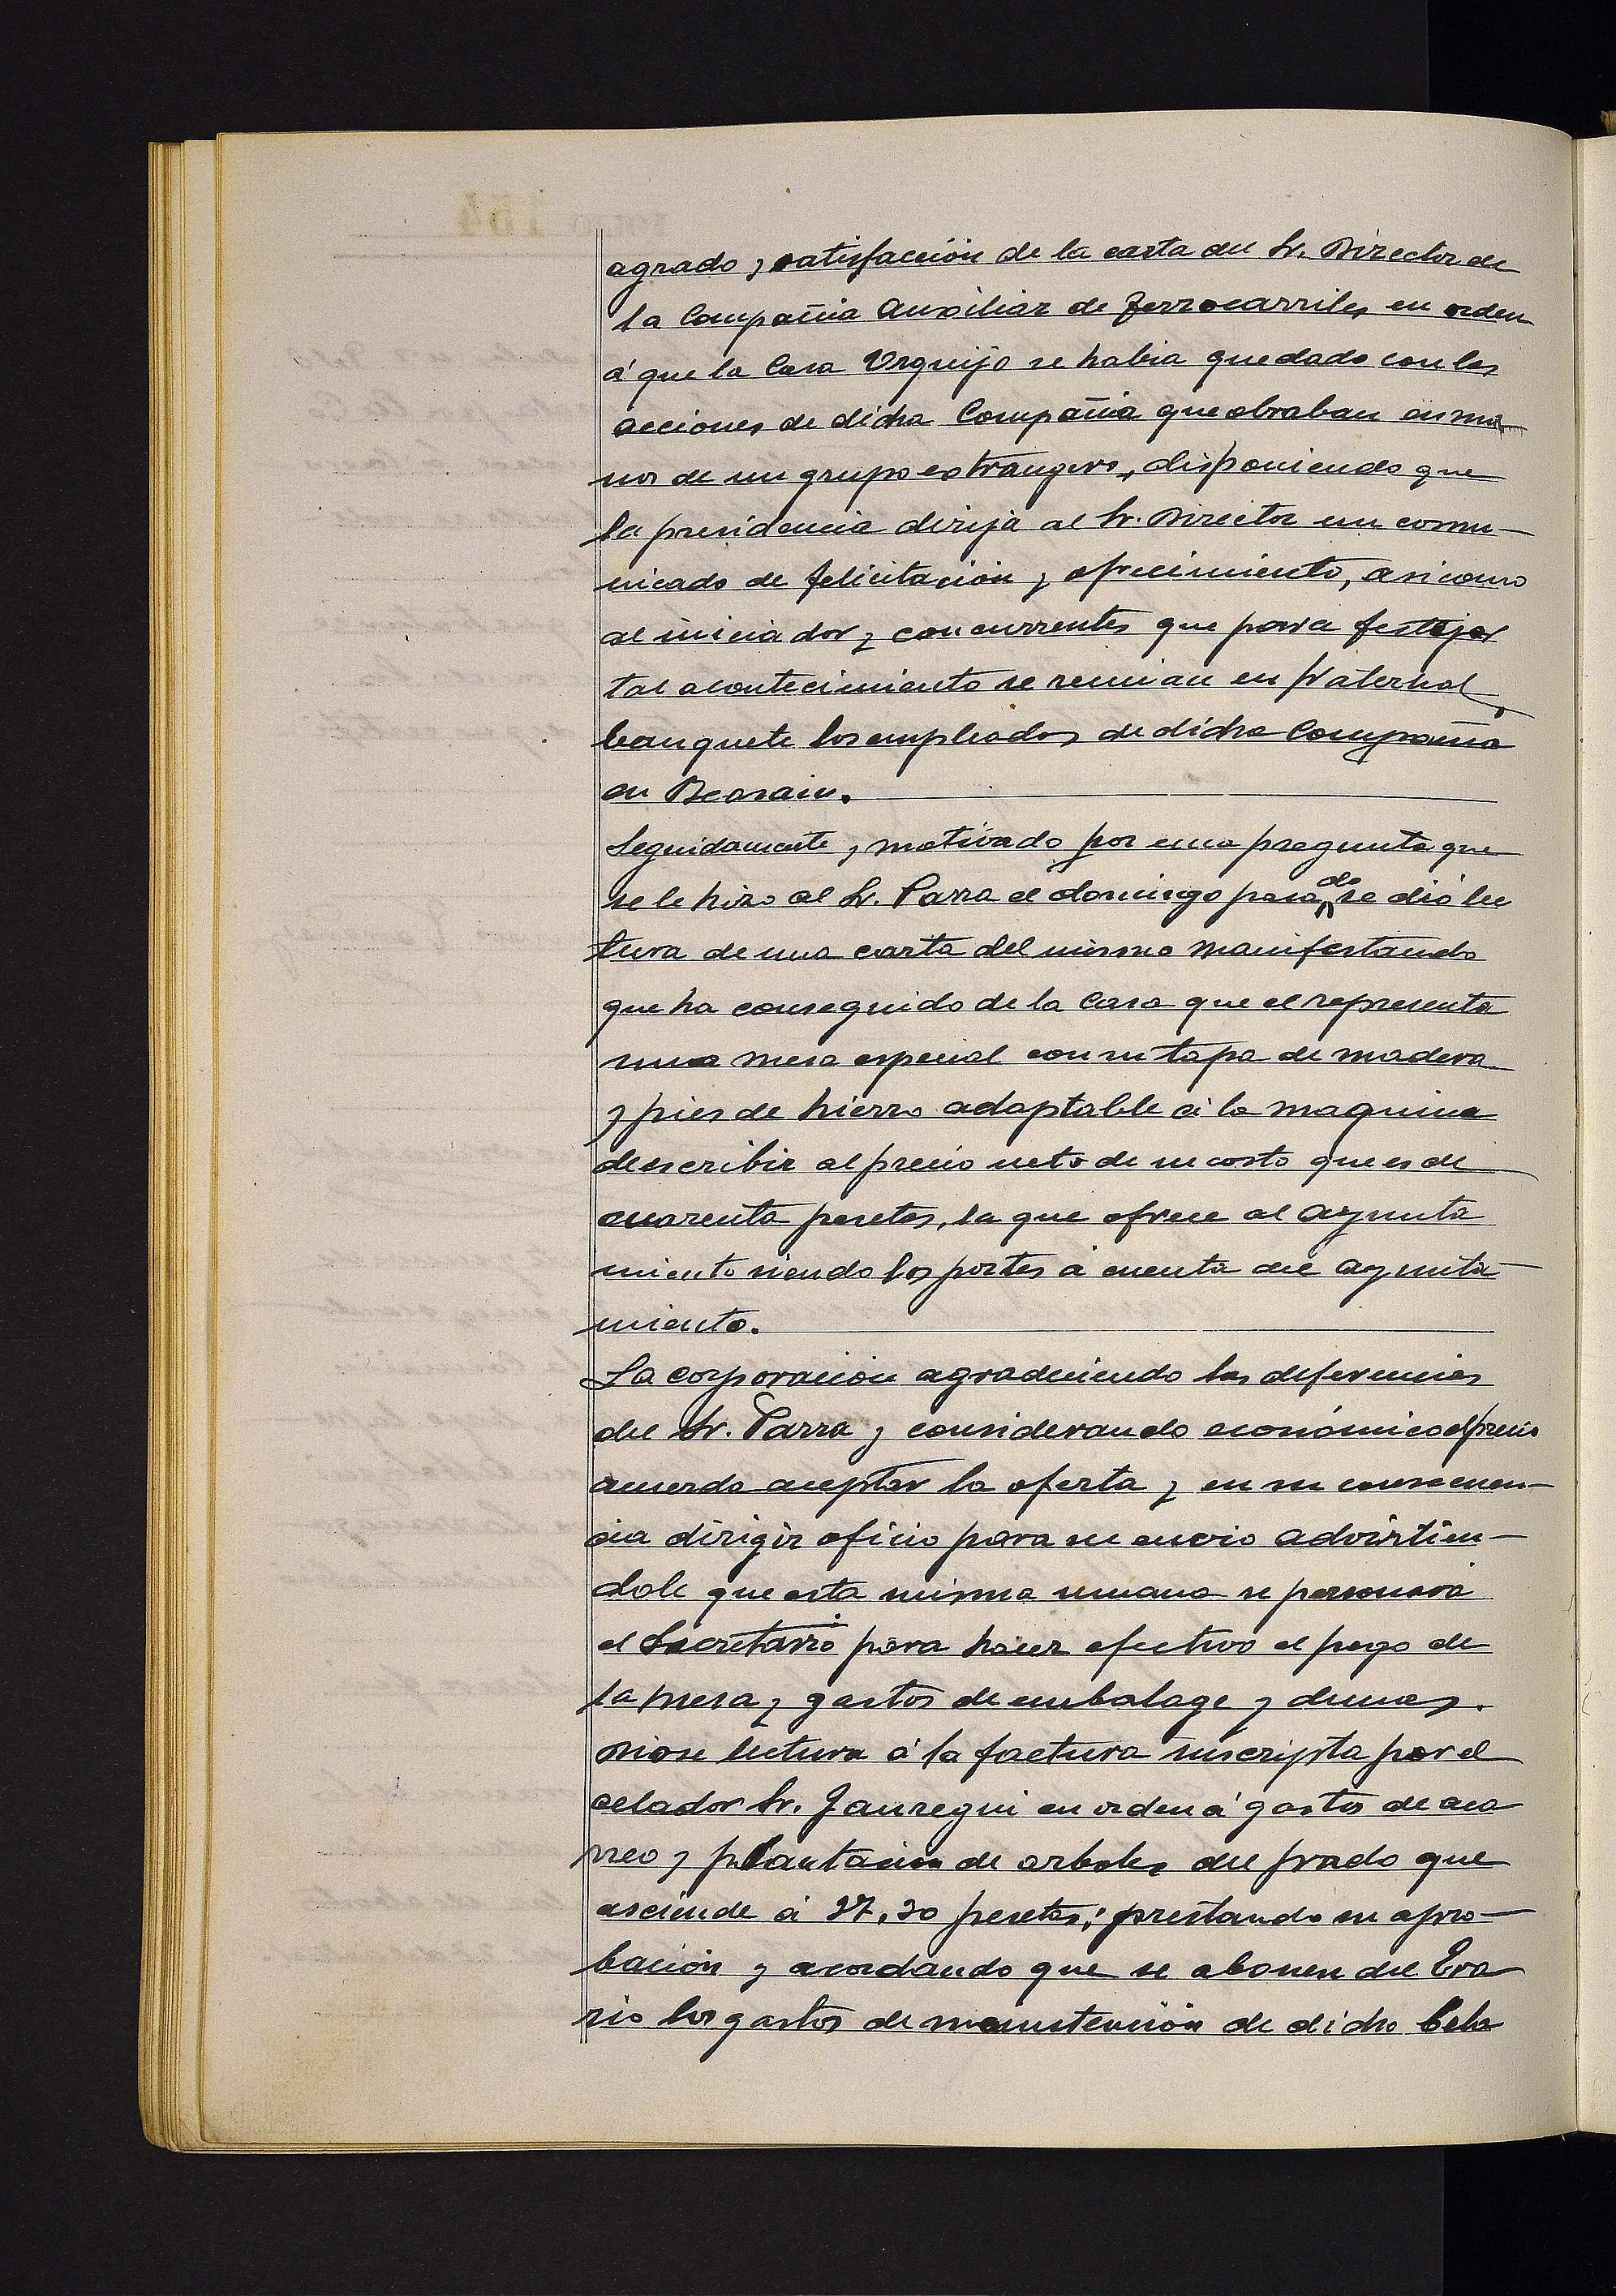 agrado y satisfacción de la carta del Sr. Director de
la Compañia Auxiliar de Ferrocarriles en orden
á que la Casa Urquijo se habia quedado con las
acciones de dicha Compañia que obraban en ma
nos de un grupo extrangero, disponiendo que
la presidencia dirija al Sr. Director un comu-
nicado de felicitación y ofrecimiento, asi como
al iniciador y concurrentes que para festejar
tal acontecimiento se reunian en fraternal
banquete los empleados de dicha Compañia
en Beasain.
Seguidamente y motivado por una pregunta que
se le hizo al Sr. Parra el domingo pasado se dió lec
tura de una carta del mismo manifestando
que ha conseguido de la Casa que el representa
una mesa especial con su tapa de madera
y pies de hierro adaptable á la maquina
de escribir al precio neto de su costo que es de
cuarenta pesetas, la que ofrece al Ayunta
miento siendo los portes á cuenta del Ayunta-
miento.
La corporación agradeciendo las deferencias
del Sr. Parra y considerando económico el precio
acuerda aceptar la oferta y en su consecuen-
cia dirigir oficio para su envio advirtien-
dole que esta misma semana se personará
el Secretario para hacer efectivo el pago de
la mesa y gastos de embalage y demas.
Diose lectura á la factura suscripta por el
celador Sr. Jauregui en orden á gastos de aca
rreo y plantacion de arboles del prado que
asciende á 27,20 pesetas; prestando su apro-
bación y acordando que se abonen del Era
rio los gastos de manutención de dicho Cela